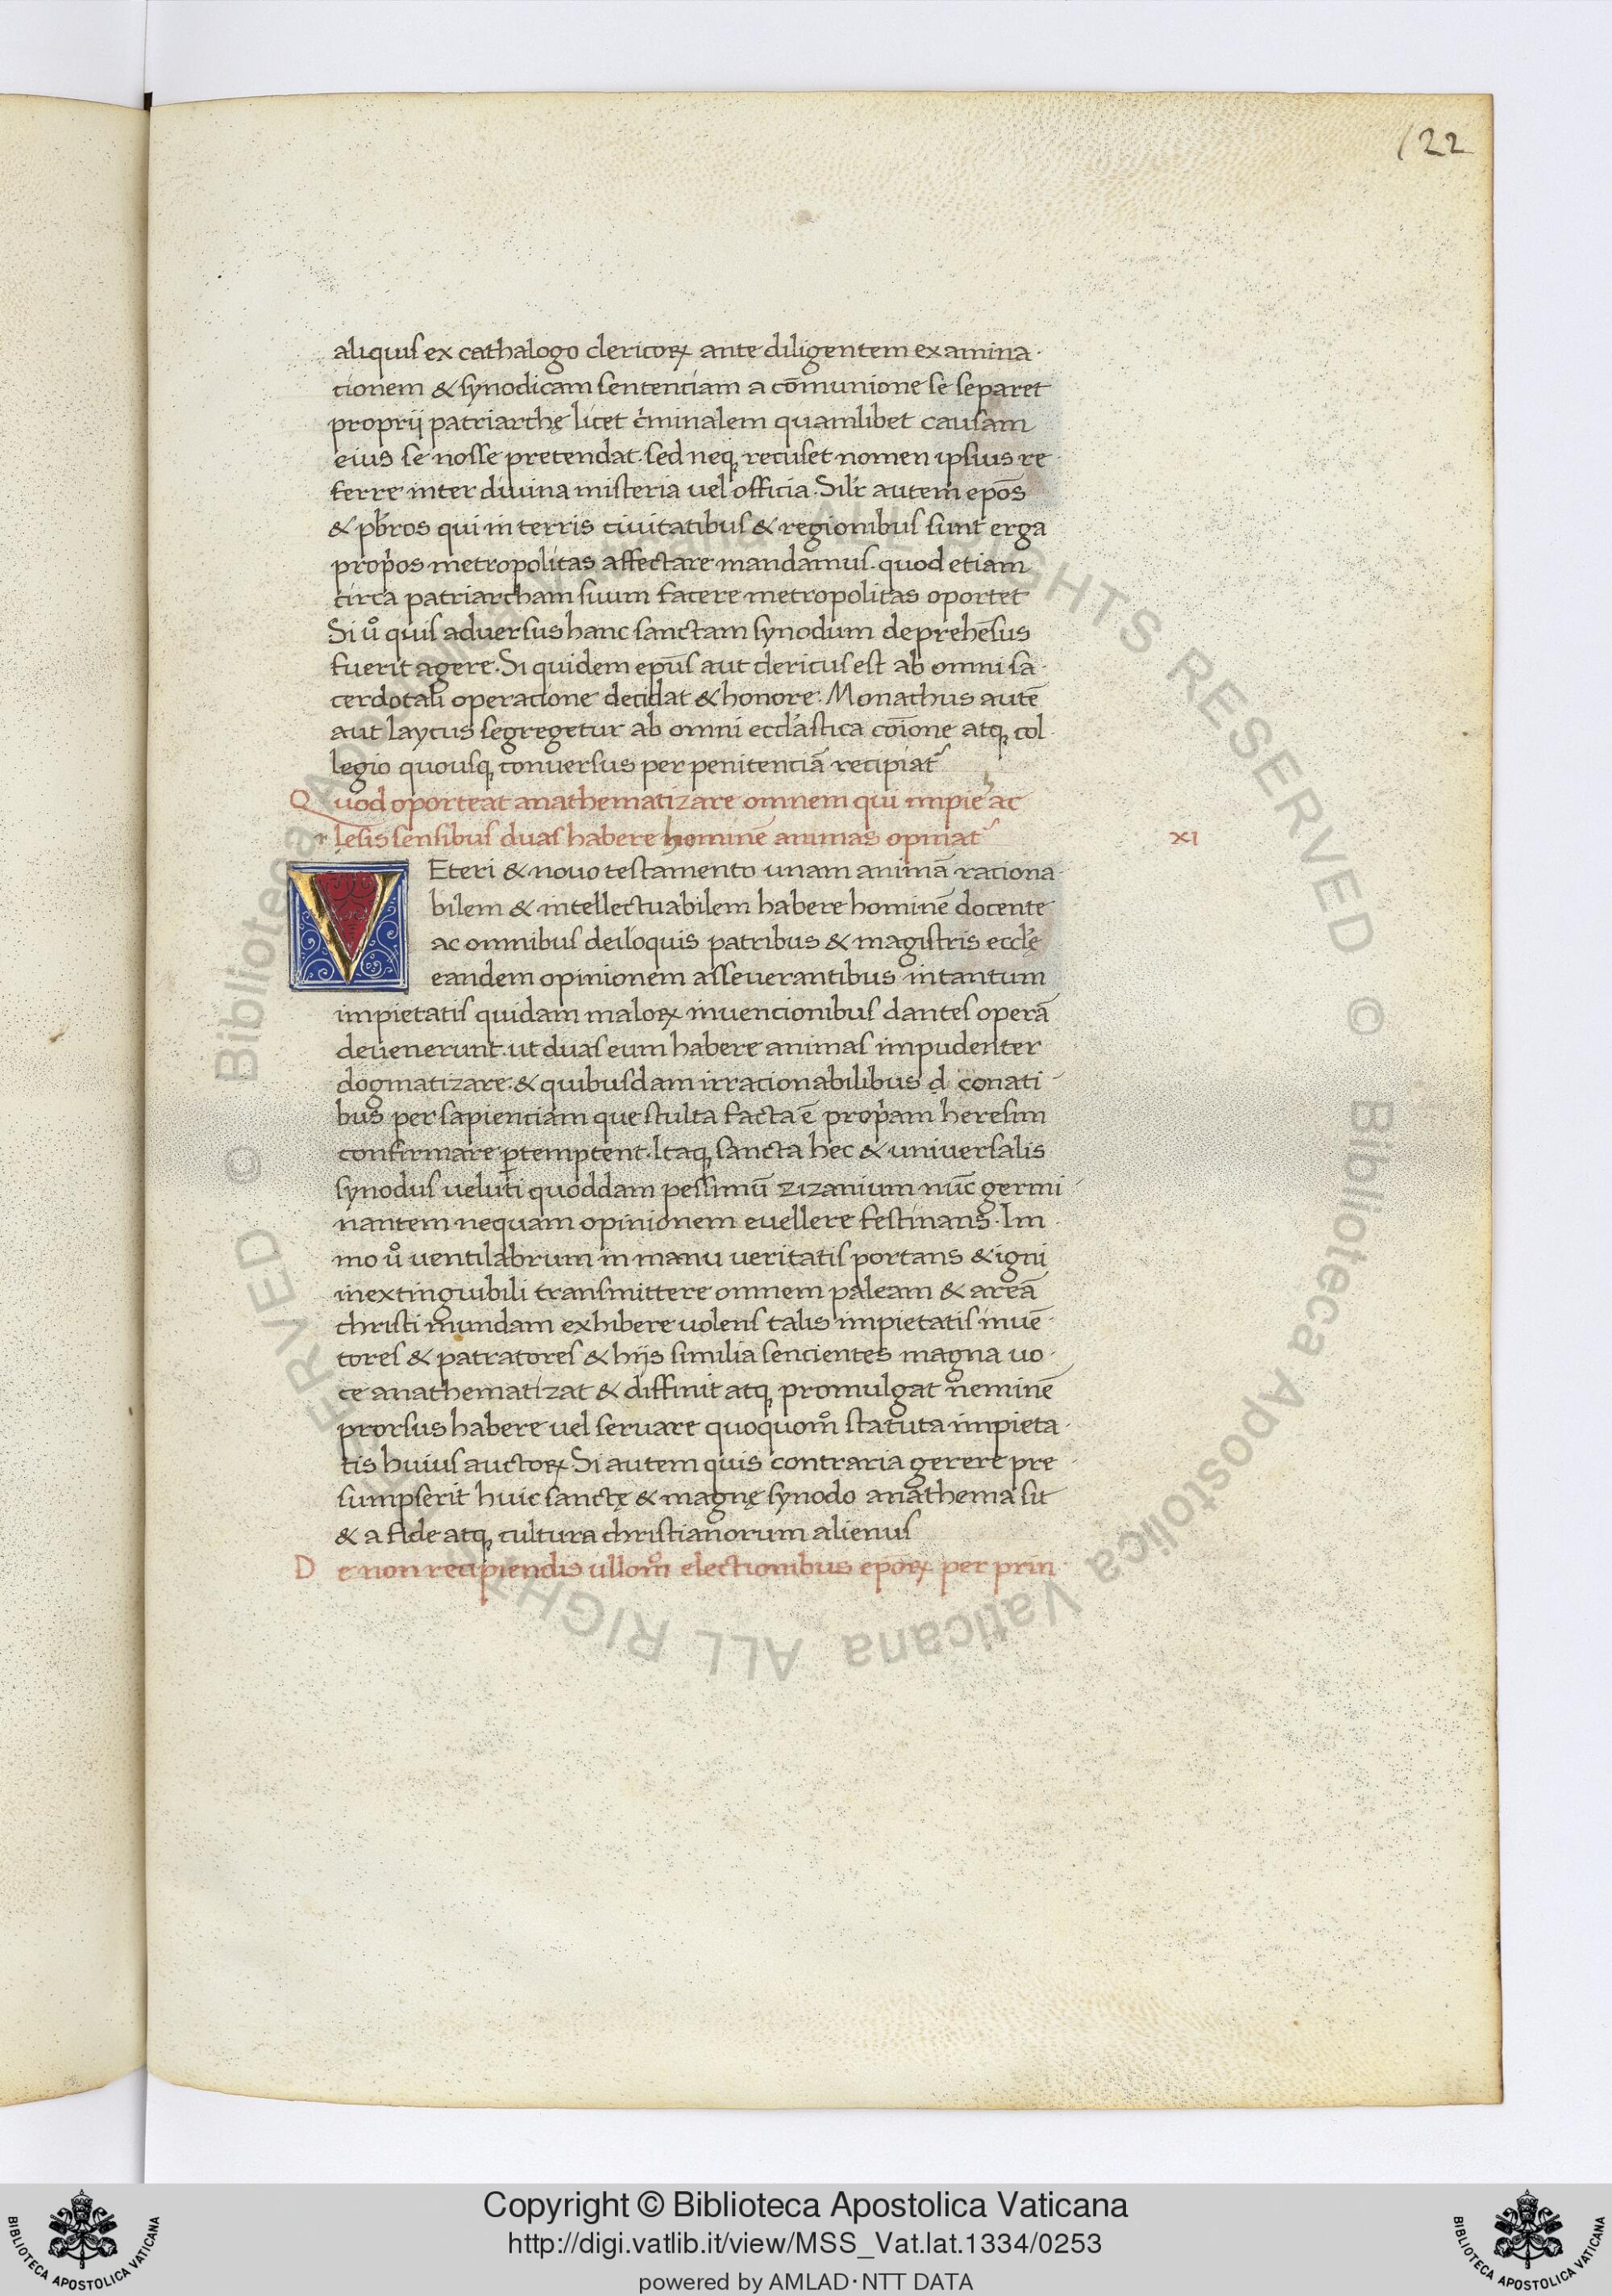 122
aliquis ex cathalogo clericoꝝ ante diligentem examina-
tionem & synodicam sententiam a cōmunione se separet
proprij patriarchę licet cͥminalem quamlibet causam
eius se nosse pretendat. sed neqꝫ recuset nomen ipsius re
ferre inter divina misteria vel officia. Silr̄ autem ep̄os
& pb̄ros qui in terris civitatibus & regionibus sunt erga
propͥos metropolitas affectare mandamus. quod etiam
circa patriarcham suum facere metropolitas oportet
Si uͦ quis adversus hanc sanctam synodum deprehēsus
fuerit agere. Si quidem ep̄us aut clericus est ab omni sa-
cerdotali operatione decidat & honore. Monachus autē
aut laycus segregetur ab omni eccl̓astica cōione atqꝫ col-
legio quousqꝫ conversus per penitenciā recipiat᷑
Quod oporteat anathematizare omnem qui impie ac
lesis sensibus duas habere hominē animas opinat᷑ XI
VEteri & novo testamento unam animā rationa-
bilem & intellectuabilem habere hominē docente
ac omnibus deiloquis patribus & magistris eccl̓ę
eandem opinionem asseverantibus in tantum
impietatis quidam maloꝝ invencionibus dantes operā
devenerunt. ut duas eum habere animas impudenter
dogmatizare. & quibusdam irracionabilibus d. conati-
bus per sapienciam que stulta facta ē propͥam heresim
confirmare ꝑtemptent. Itaqꝫ sancta hec & universalis
synodus veluti quoddam pessimū zizanium nūc germi-
nantem nequam opinionem evellere festinans. Im-
mo uͦ ventilabrum in manu veritatis portans & igni
inextinguibili transmittere omnem paleam & areā
christi mundam exhibere volens talis impietatis invē-
tores & patratores & hijs similia sencientes magna vo-
ce anathematizat & diffinit atqꝫ promulgat neminē
prorsus habere vel servare quoquomͦ statuta impieta-
tis huius auctoꝝ. Si autem quis contraria gerere pre-
sumpserit huic sanctę & magnę synodo anathema sit
& a fide atqꝫ cultura christianorum alienus
De non recipiendis ullomͦ electionibus ep̄oꝝ per prin-
Copyright © Biblioteca Apostolica Vaticana
http://digi.vatlib.it/view/MSS_Vat.lat.1334/0253
powered by AMLAD·NTT DATA
BIBLIOTECA APOSTOLICA VATICANA
BIBLIOTECA APOSTOLICA VATICANA
© Biblioteca Apostolica Vaticana ALL RIGHTS RESERVED © Biblioteca Apostolica Vaticana ALL RIGHTS RESERVED